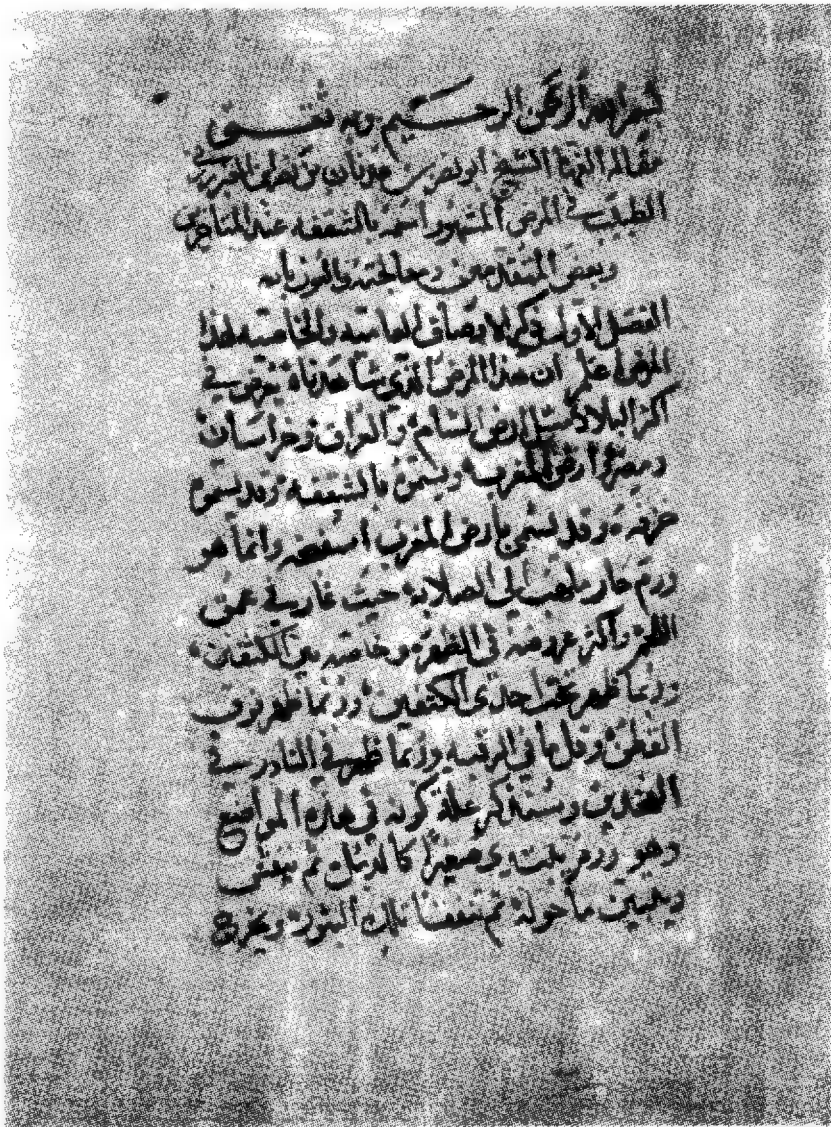 بسم الله الرحمن الرحيم وبه ثقتي
مقالة الفها الشيخ ابو نصر بن عدنان بن
الطبيب في المرض المشهور اسمه بالشقفه عند المتاخرين
وبعض المتقدمين ومعالجته
الفصل الاول في ذكر الاوصاف العامية والخاصية لهذا
المرض اعلم ان هذا المرض الذي شاهدناه يعرض في
اكثر البلاد مثل ارض الشام والعراق وخراسان
ومصر وارض المغرب ويسمى بالشقفه وقد يسمى
وقد يسمى بارض المغرب وانما هو
ورم حار ملتهب الى الصلابه حيث غار في عمق
الظهر واكثر عروضه في الظهر وخاصه بين الكتفين
وربما ظهر تحت احدى الكتفين وربما ظهر فوق
القطن وقل ما في الرقبه وربما ظهر في النادر في
الفخذين وسنذكر علة كونه في هذه المواضع
وهو ورم يبتدى صغيرا كالدمل ثم
ما حوله ثم تلك البثور ويخرج